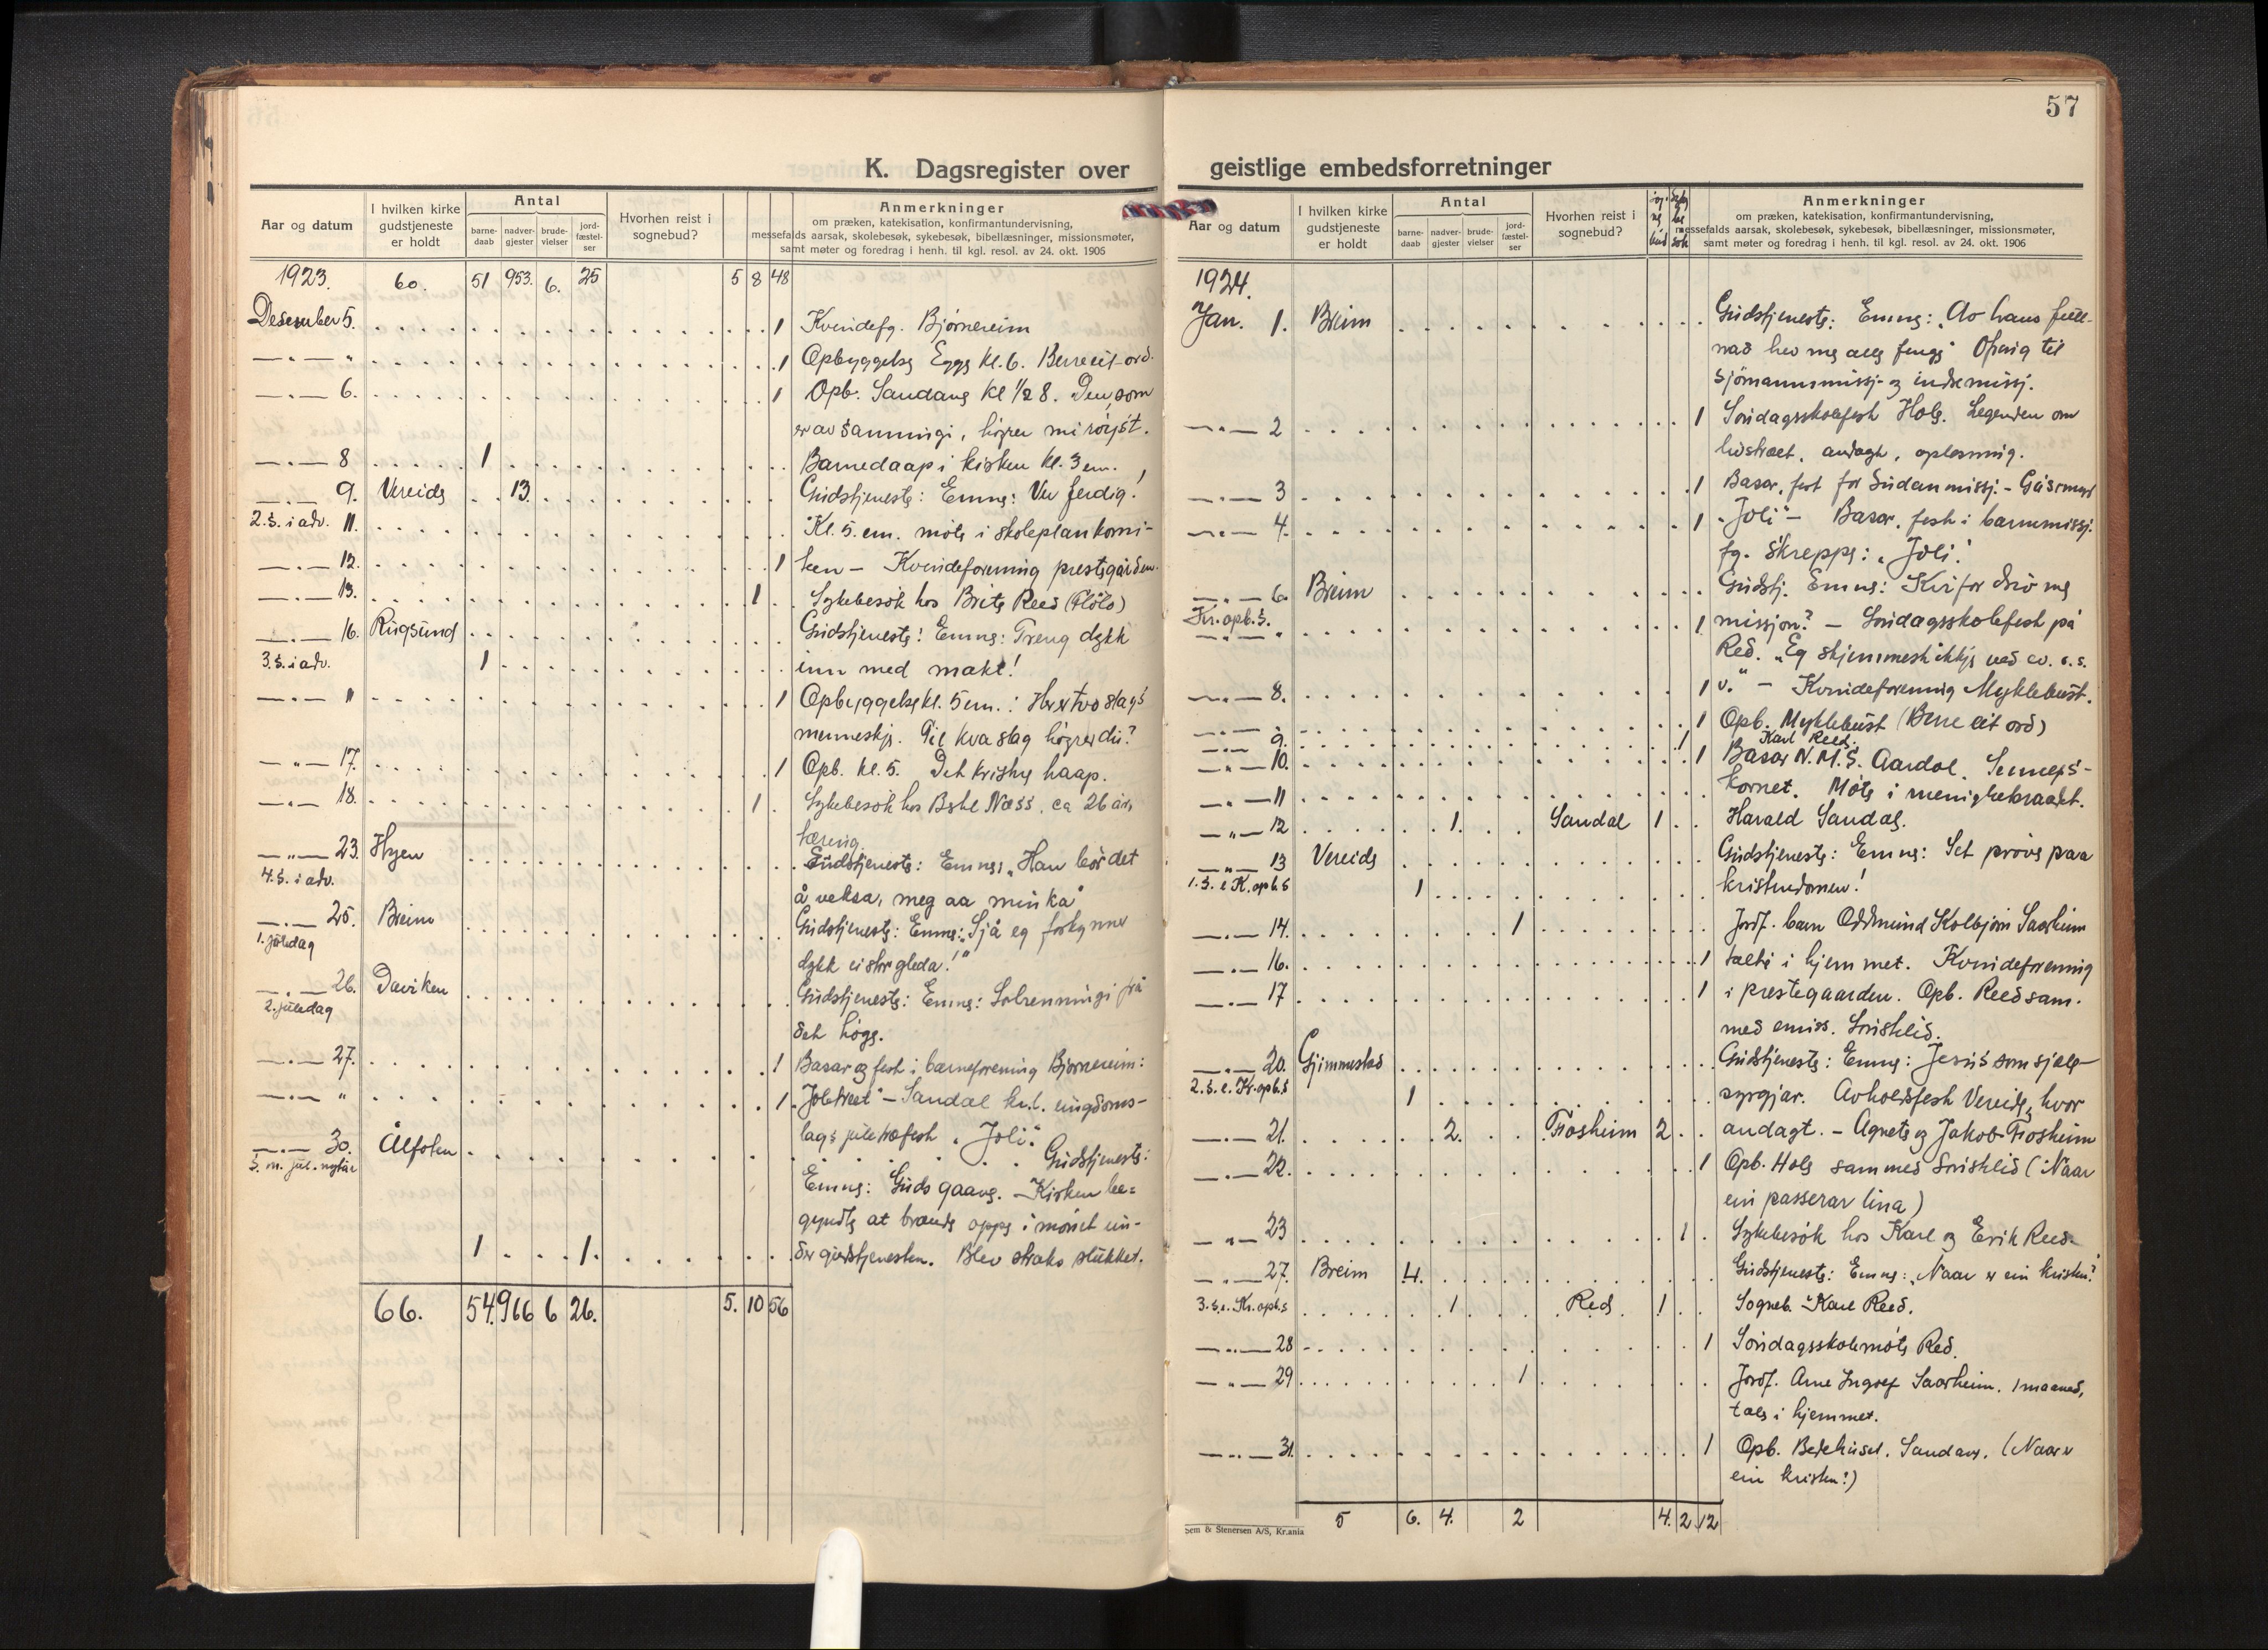 57
K. Dagsregister over
Aar og datum
I hvilken kirke
gudstjeneste
er holdt
Antal
barne-
daab
nadver-
gjester
brude-
vielser
jord-
fæstel-
ser
Hvorhen reist i
sognebud?
Anmerkninger
om præken, katekisation, konfirmantundervisning,
messefalds aarsak, skolebesøk, sykebesøk, bibellæsninger, missionsmøter,
samt møter og foredrag i henh. til kgl. resol. av 24. okt. 1906
1923. 60. 51 953. 6. 25 5 8 48
Desember 5. 1 Kvindefg. Bjørnereim
— " — " 1 Opbyggelse Egge kl. 6. Berre eit ord.
— " — 6. 1 Opb. Sandane kl 1/2 8. Den, som
er av sanningi, høyrer mi røyst.
— " — 8 1 Barnedaap i kirken kl. 3 em.
— " — 9. Vereide 13. Gudstjeneste: Emne: Ver ferdig!
2. s. i adv. 11. Kl. 5. em. møte i skoleplankomi-
— " — 12. 1 teen — Kvindeforening prestegården.
— " — 13. 1 Sykebesøk hos Brite Reed (Flølo)
— " — 16. Rugsund Gudstjeneste: Emne: Treng dykk
3. s. i adv. 1 inn med makt!
— " — " 1 Opbyggelse kl. 5 em.: Her er two slags
menneskje. Til kva slag høyrer du?
— " — 17. 1 Opb. kl. 5. Det kristne haap.
— " — 18. 1 Sykebesøk hos Næss. ca 26 år,
tæring.
— " — 23. Hyen Gudstjeneste: Emne: "Han bør det
4. s. i adv. å veksa, meg aa minka"
— " — 25. Breim Gudstjeneste: Emne: "Sjå eg forkynner
1. juledag dykk ei stor gleda!"
— " — 26. Daviken Gudstjeneste: Emne: Solrenningi frå
2. juledag det høge.
— " — 27. 1 Basar og fest i barneforening Bjørnereim:
— " — " 1 "Joletreet" — Sandal krl. ungdoms-
lags juletræfest "Joli".
— " — 30. Ålfoten Gudstjeneste:
S. m. jul. nytår Emne: Guds gaave. — Kirken be-
gyndte at brænde oppe i mønet un-
1 1. der gudstjenesten. Blev straks slukket.
66. 54. 966 6 26. 5. 10 56
geistlige embedsforretninger
Aar og datum
I hvilken kirke
gudstjeneste
er holdt
Antal
barne-
daab
nadver-
gjester
brude-
vielser
jord-
fæstel-
ser
Hvorhen reist i
sognebud?
Anmerkninger
om præken, katekisation, konfirmantundervisning,
messefalds aarsak, skolebesøk, sykebesøk, bibellæsninger, missionsmøter,
samt møter og foredrag i henh. til kgl. resol. av 24. okt. 1906
1924.
Jan. 1. Breim Gudstjeneste: Emne: "Av hans full-
nad hev me alle fenge" Ofring til
sjømannsmissj- og indremissj.
— " — 2 1 Søndagsskolefest Hole. Legenden om
livstræet, andagt, oplesning.
— " — 3 1 Basar, fest for Sudanmissj. —
— " — 4. 1 "Joli" — Basar, fest i barnemissj.
fg. Skreppe: "Joli".
— " — 6. Breim Gudstj. Emne: Kvifor driv me
Kr. opb. s.
— " — " 1 missjon? — Søndagsskolefest på
Red. "Eg skjemmest ikkje ved ev. o. s.
— " — 8. 1 v." — Kvindeforening Myklebust.
1 Opb. Myklebust (Berre eit ord)
— " — 9. 1 Karl Reed.
— " — 10. 1 Basar N. M. S. Aardal. Senneps-
— " — 11 kornet. Møte i menighetsraadet.
— " — 12 1. Sandal 1 Harald Sandal.
— " — 13 Vereide Gudstjeneste: Emne: Set prøve paa
1. s. e K. opb. s 1 kristendomen!
— " — 14. 1 Jordf. barn Oddmund Kolbjørn Saarheim
— " — 16. 1 talte i hjemmet. Kvindeforening
— " — 17 1 i prestegaarden. Opb. Reed sam.
med emiss.
— " — 20. Gjimmestad Gudstjeneste: Emne: Jesus som sjæle-
2. s. e. Kr. opb. s 1 syrgjar. Avholdsfest Vereide, hvor
— " — 21. 2. Fosheim 2 andagt. — Agnete og Jakob Fosheim
— " — 22. 1 Opb. Hole sam med (Naar
ein passerar lina)
— " — 23 1 Sykebesøk hos Karl og Erik Reed.
— " — 27. Breim 4. Gudstjeneste: Emne: "Naar er ein kristen?"
3. s. e. Kr. opb. s 1 Red. 1 Sogneb. Karl Reed.
— " — 28 1 Søndagsskolemøte Red.
— " — 29 1 Jordf. Arne Ingolf Saarheim. 1 maaned,
tale i hjemmet.
— " — 31. 1 Opb. Bedehuset. Sandane. (Naar er
ein kristen?)
5 6. 4. 2 4. 2 12
Sem & Stenersen A/S, Kr.ania